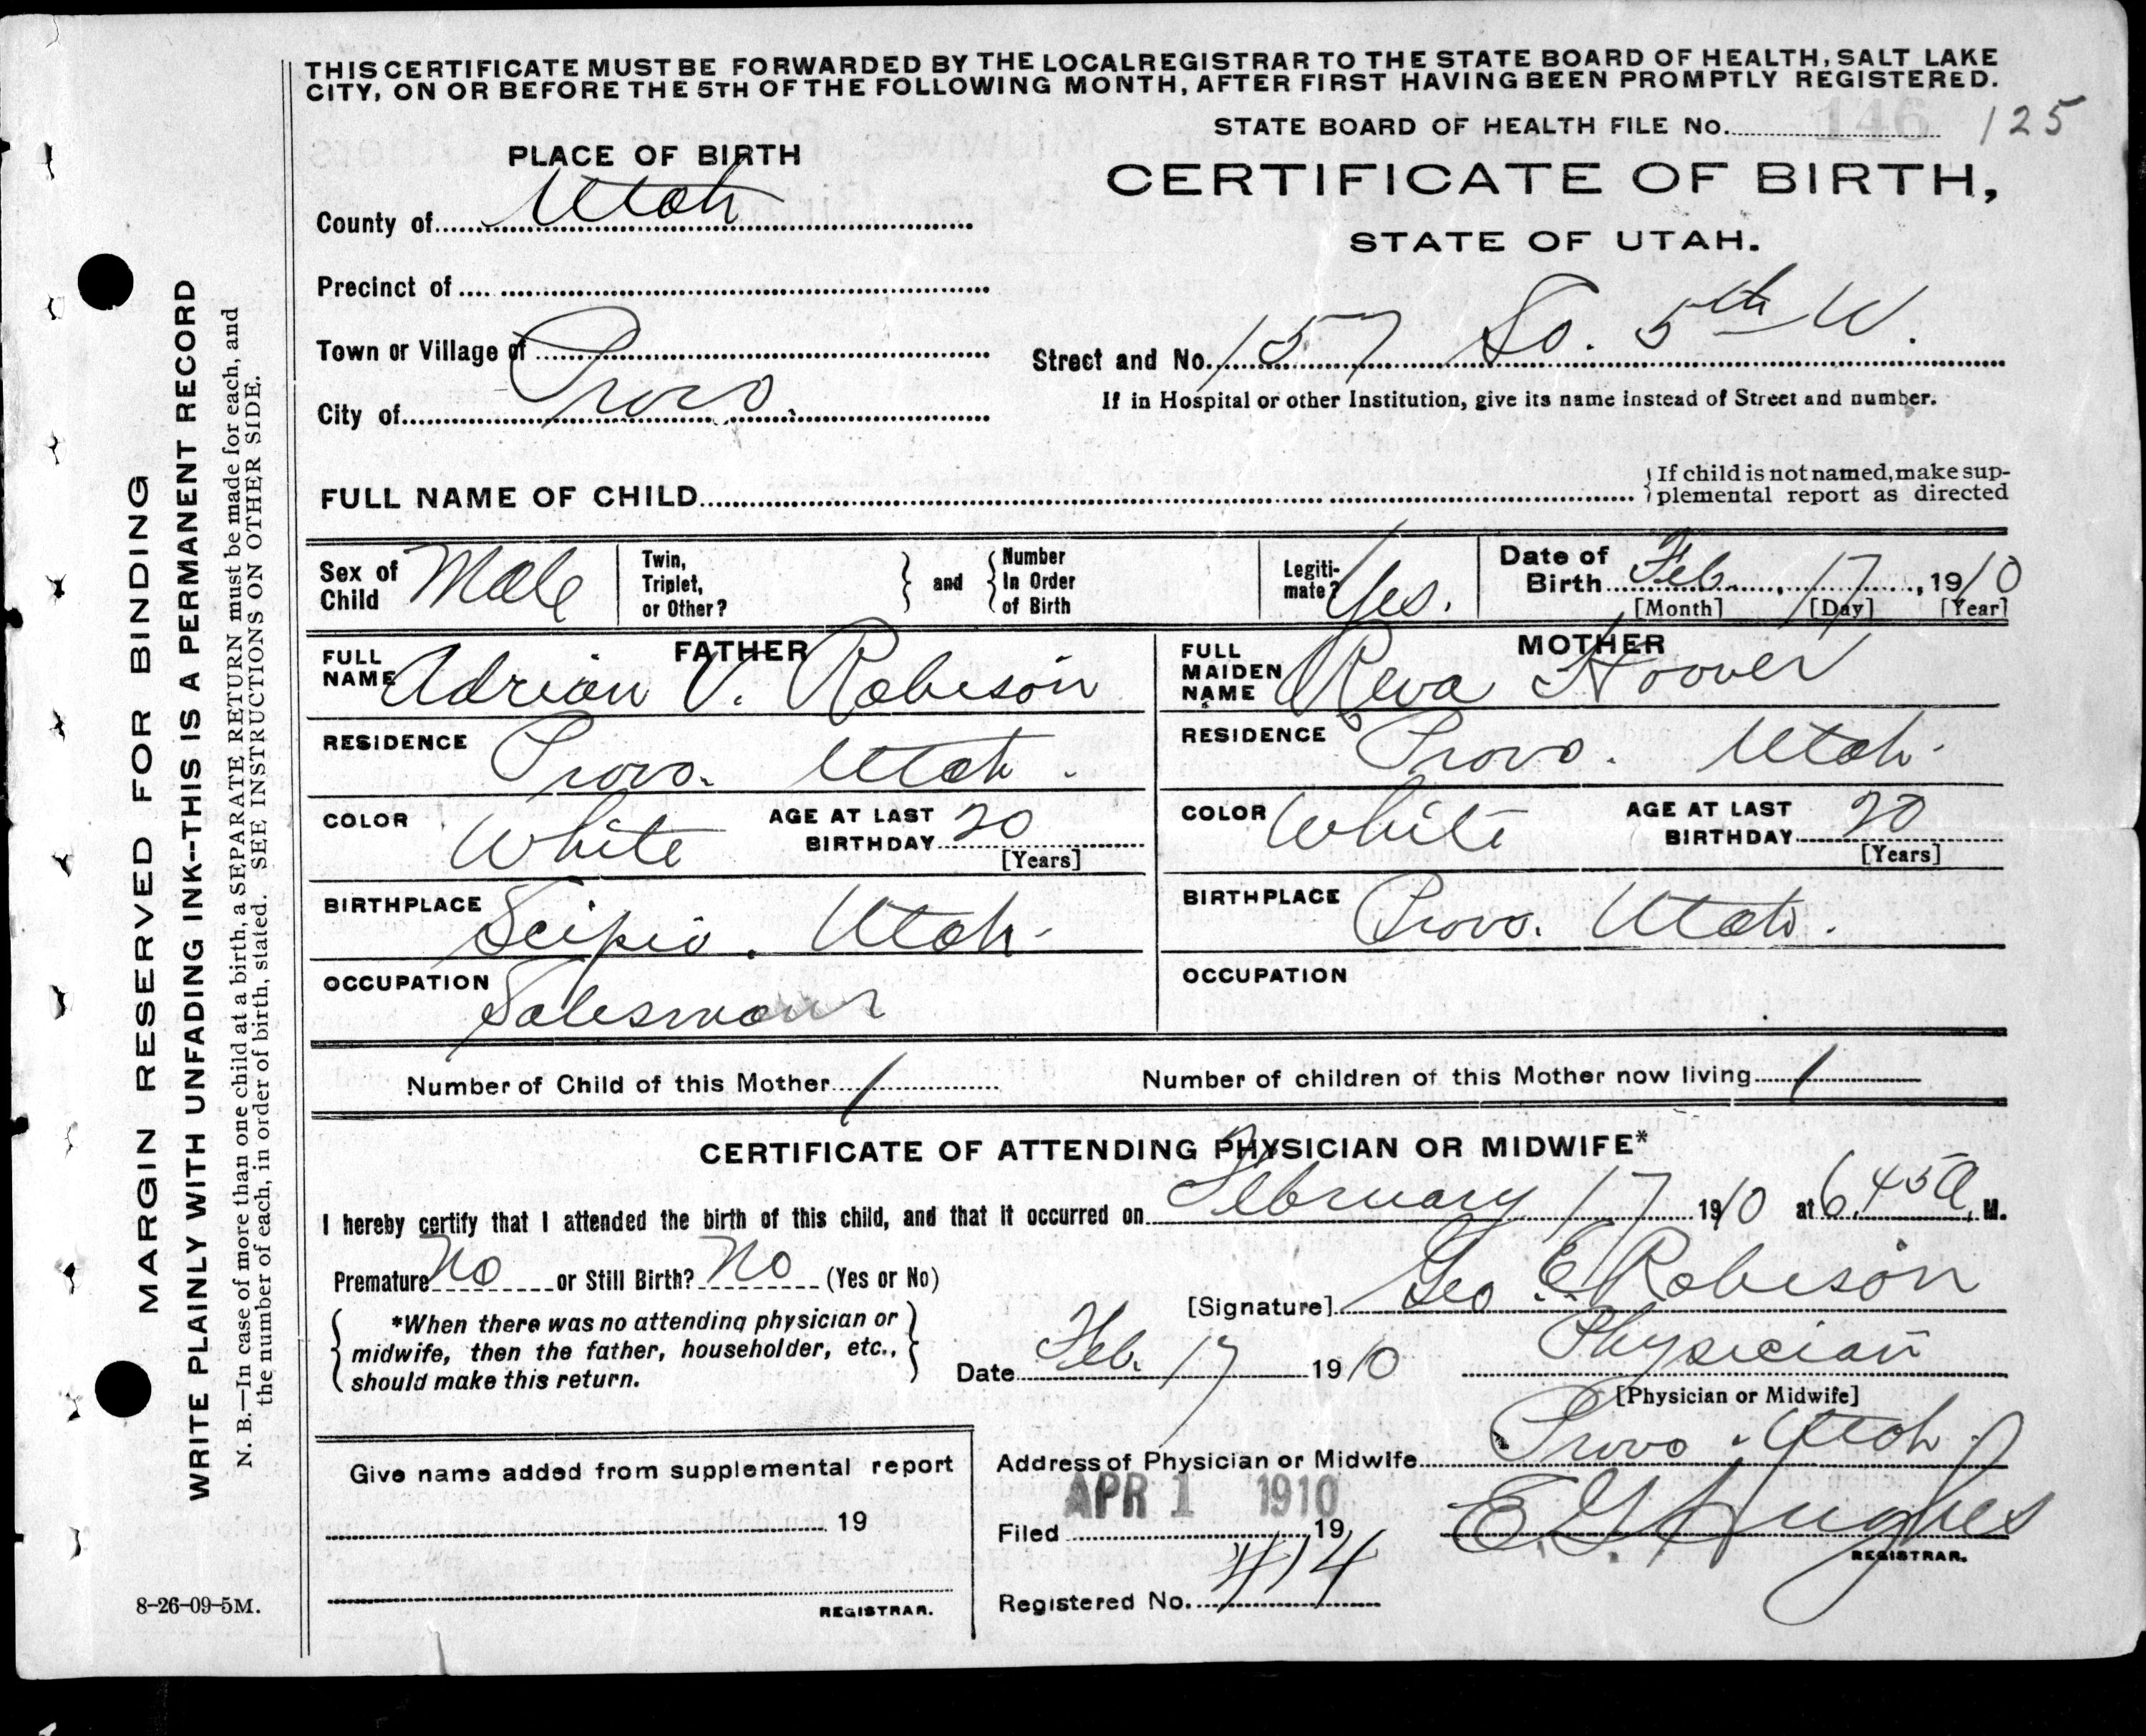 THIS CERTIFICATE MUST BE FORWARDED BY THE LOCAL REGISTRAR TO THE STATE BOARD OF HEALTH, SALT LAKE
CITY, ON OR BEFORE THE 5TH OF THE FOLLOWING MONTH, AFTER FIRST HAVING BEEN PROMPTLY REGISTERED.
STATE BOARD OF HEALTH FILE No. 146 125
PLACE OF BIRTH
CERTIFICATE OF BIRTH,
STATE OF UTAH.
County of Utah
Precinct of
Town or Village of
Street and No. 157 So. 5th W.
City of Provo.
If in Hospital or other Institution, give its name instead of Street and number.
FULL NAME OF CHILD
{If child is not named, make sup-
plemental report as directed
Sex of Child Male
Twin, Triplet, or Other?
} and { Number In Order of Birth
Legiti-mate? Yes.
Date of Birth Feb. 17, 1910
[Month] [Day] [Year]
FATHER
FULL NAME Adrian V. Robison
RESIDENCE Provo. Utah.
COLOR White AGE AT LAST BIRTHDAY 20
[Years]
BIRTHPLACE Scipio. Utah.
OCCUPATION Salesman
MOTHER
FULL MAIDEN NAME Reva Hoover
RESIDENCE Provo. Utah.
COLOR White AGE AT LAST BIRTHDAY 20
[Years]
BIRTHPLACE Provo. Utah.
OCCUPATION
Number of Child of this Mother 1 Number of children of this Mother now living 1
CERTIFICATE OF ATTENDING PHYSICIAN OR MIDWIFE*
I hereby certify that I attended the birth of this child, and that it occurred on February 17 1910 at 6.45 A, M.
Premature No or Still Birth? No (Yes or No)
[Signature] Geo. E. Robison
{ *When there was no attending physician or
midwife, then the father, householder, etc.,
should make this return. }
Date Feb. 17 1910 Physician
[Physician or Midwife]
Address of Physician or Midwife Provo. Utah.
Give name added from supplemental report
19
REGISTRAR.
APR 1 1910
Filed 19 E. G. Hughes
REGISTRAR.
Registered No. 414
MARGIN RESERVED FOR BINDING
WRITE PLAINLY WITH UNFADING INK--THIS IS A PERMANENT RECORD
N. B.—In case of more than one child at a birth, a SEPARATE RETURN must be made for each, and
the number of each, in order of birth, stated. SEE INSTRUCTIONS ON OTHER SIDE.
8-26-09-5M.